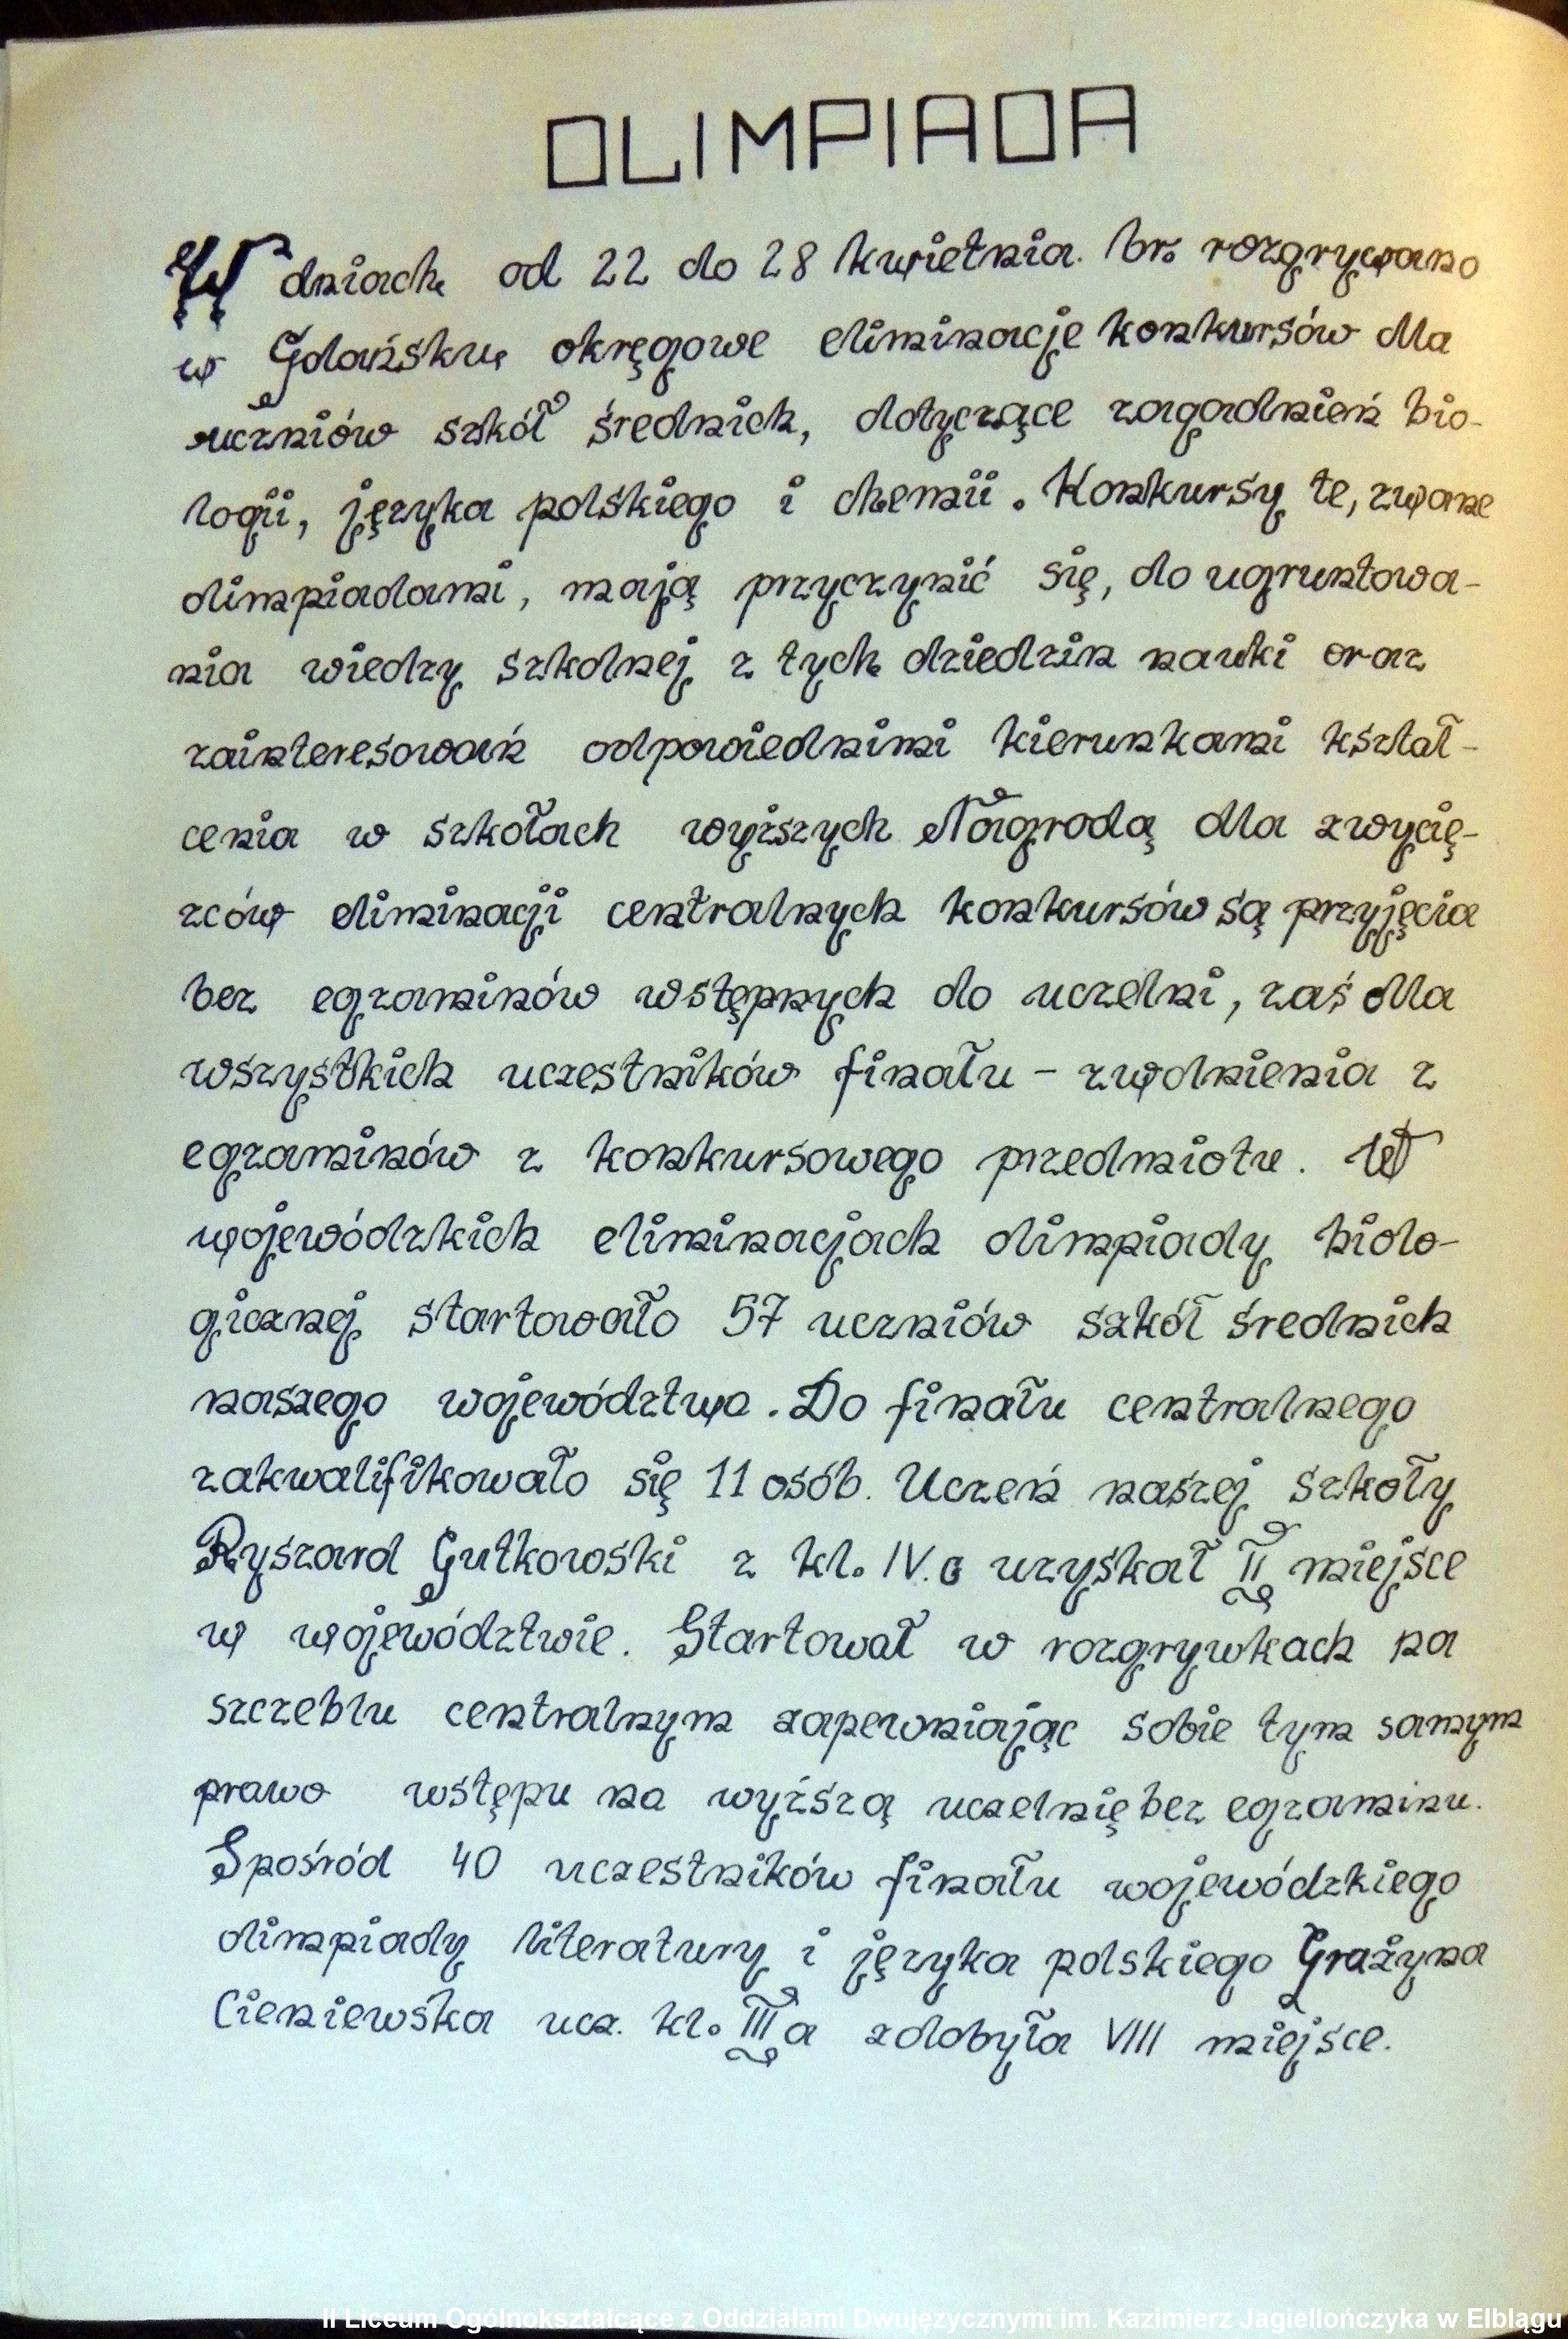 OLIMPIADA
W dniach od 22 do 28 kwietnia. br. rozgrywano
w Gdańsku okręgowe eliminacje konkursów dla
uczniów szkół średnich, dotyczące zagadnień bio-
logii, języka polskiego i chemii. Konkursy te, zwane
olimpiadami, mają przyczynić się, do ugruntowa-
nia wiedzy szkolnej z tych dziedzin nauki oraz
zainteresowań odpowiednimi kierunkami kształ-
cenia w szkołach wyższych Nagrodą dla zwycię-
zców eliminacji centralnych konkursów są przyjęcia
bez egzaminów wstępnych do uczelni, zaś dla
wszystkich uczestników finału - zwolnienia z
egzaminów z konkursowego przedmiotu. W
wojewódzkich eliminacjach olimpiady biolo-
gicznej startowało 57 uczniów szkół średnich
naszego województwa. Do finału centralnego
zakwalifikowało się 11 osób. Uczeń naszej szkoły
Ryszard Gutkowski z kl. IV. c uzyskał II miejsce
w województwie. Startował w rozgrywkach na
szczeblu centralnym zapewniając sobie tym samym
prawo wstępu na wyższą uczelnię bez egzaminu.
Spośród 40 uczestników finału wojewódzkiego
olimpiady literatury i języka polskiego Grażyna
Cieniewska ucz. kl. III a zdobyła VIII miejsce.
II Liceum Ogólnokształcące z Oddziałami Dwujęzycznymi im. Kazimierz Jagiellończyka w Elblągu